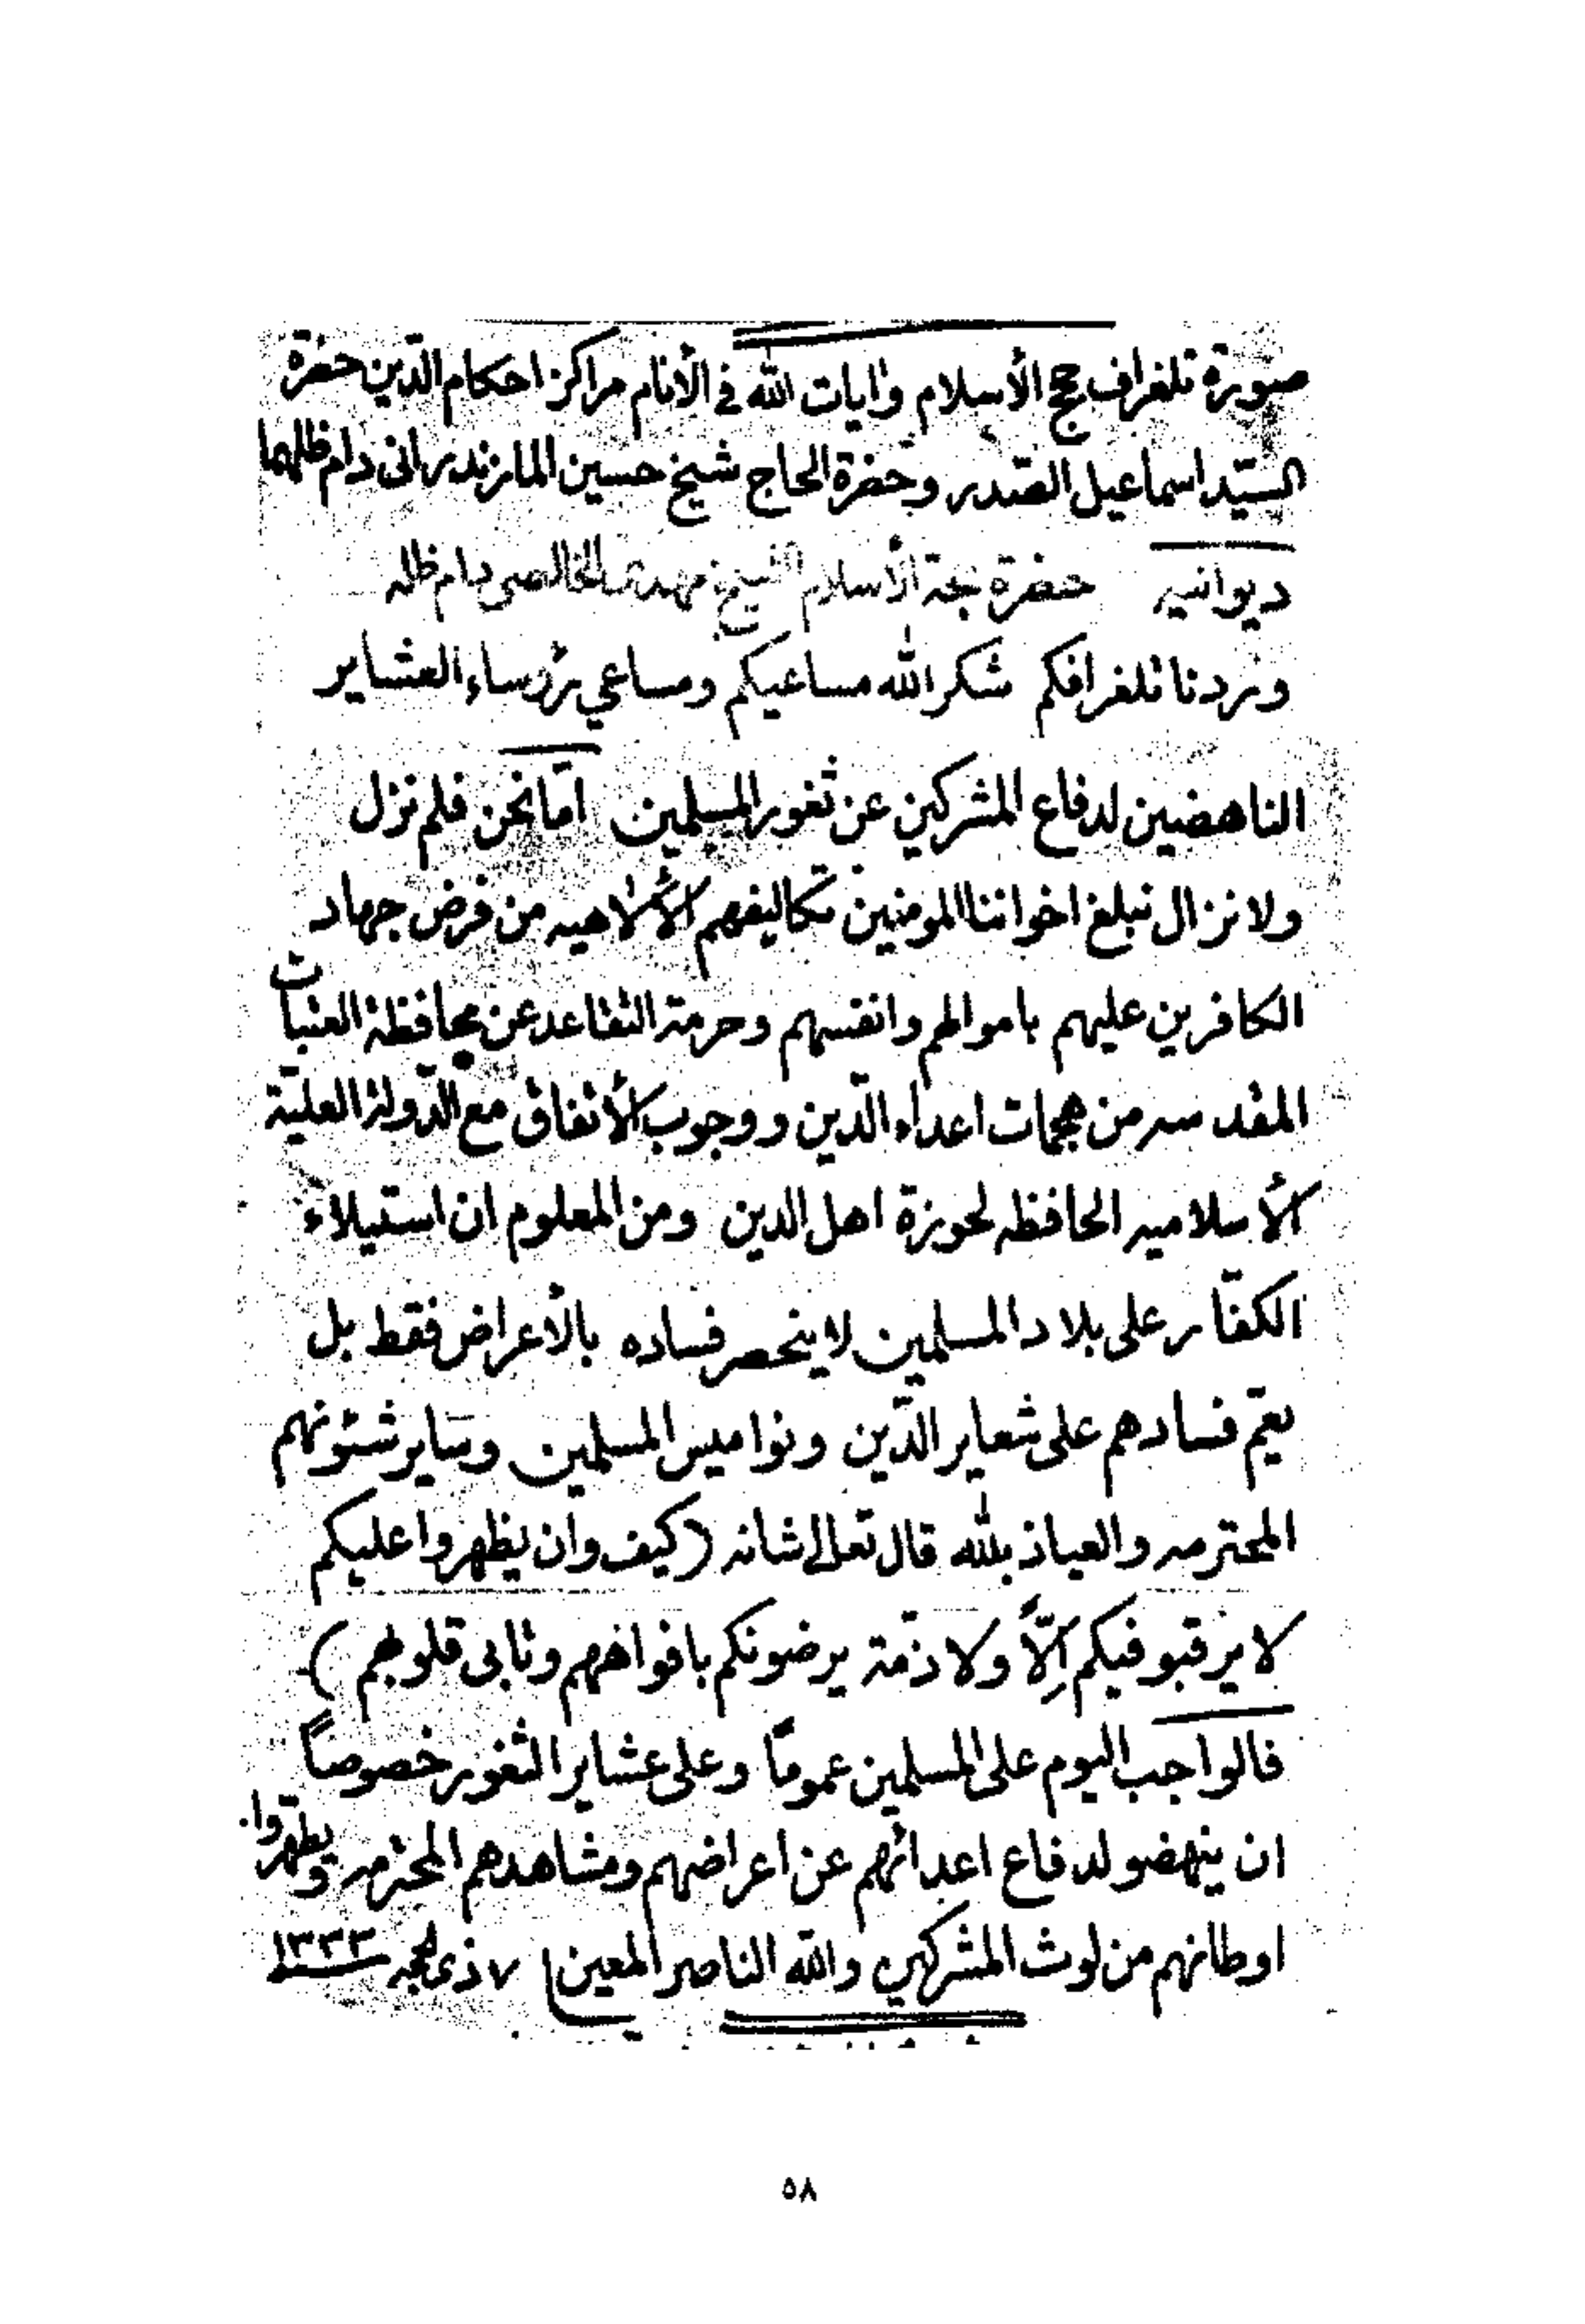 صورة تلغراف حجج الأسلام وايات الله في الأنام مراكز احكام الدين حضرة
السيد اسماعيل الصّدر وحضرة الحاج شيخ حسين المازندرانى دام ظلهما
ديوانيه حضرة حجة الأسلام الشيخ مهدى الخالصى دام ظله
وردنا تلغرافكم شكر الله مساعيكم ومساعي رؤساء العشاير
الناهضين لدفاع المشركين عن ثغور المسلمين امّا نحن فلم نزل
ولا نزال نبلغ اخواننا المومنين تكاليفهم الألاهيه من فرض جهاد
الكافرين عليهم باموالهم وانفسهم وحرمة التقاعد عن محافظة العتبات
المقدسه من هجمات اعداء الدّين ووجوب الأتفاق مع الدّولة العليّة
الأسلاميه الحافظه لحوزة اهل الدين ومن المعلوم ان استيلاء
الكفّار على بلاد المسلمين لا ينحصر فساده بالأعراض فقط بل
يعمّ فسادهم على شعاير الدّين ونواميس المسلمين وساير شئونهم
المحترمه والعياذ بالله قال تعالى شانه (كيف وان يظهروا عليكم
لا يرقبو فيكم اِلّاً ولا ذمّة يرضونكم بافواههم وتابى قلوبهم)
فالواجب اليوم على المسلمين عموماً وعلى عشاير الثغور خصوصاً
ان ينهضو لدفاع اعدائهم عن اعراضهم ومشاهدهم المحترمه ويطهّروا
اوطانهم من لوث المشركين والله الناصر المعين ٧ ذى الحجه ١٣٣٣
٥٨